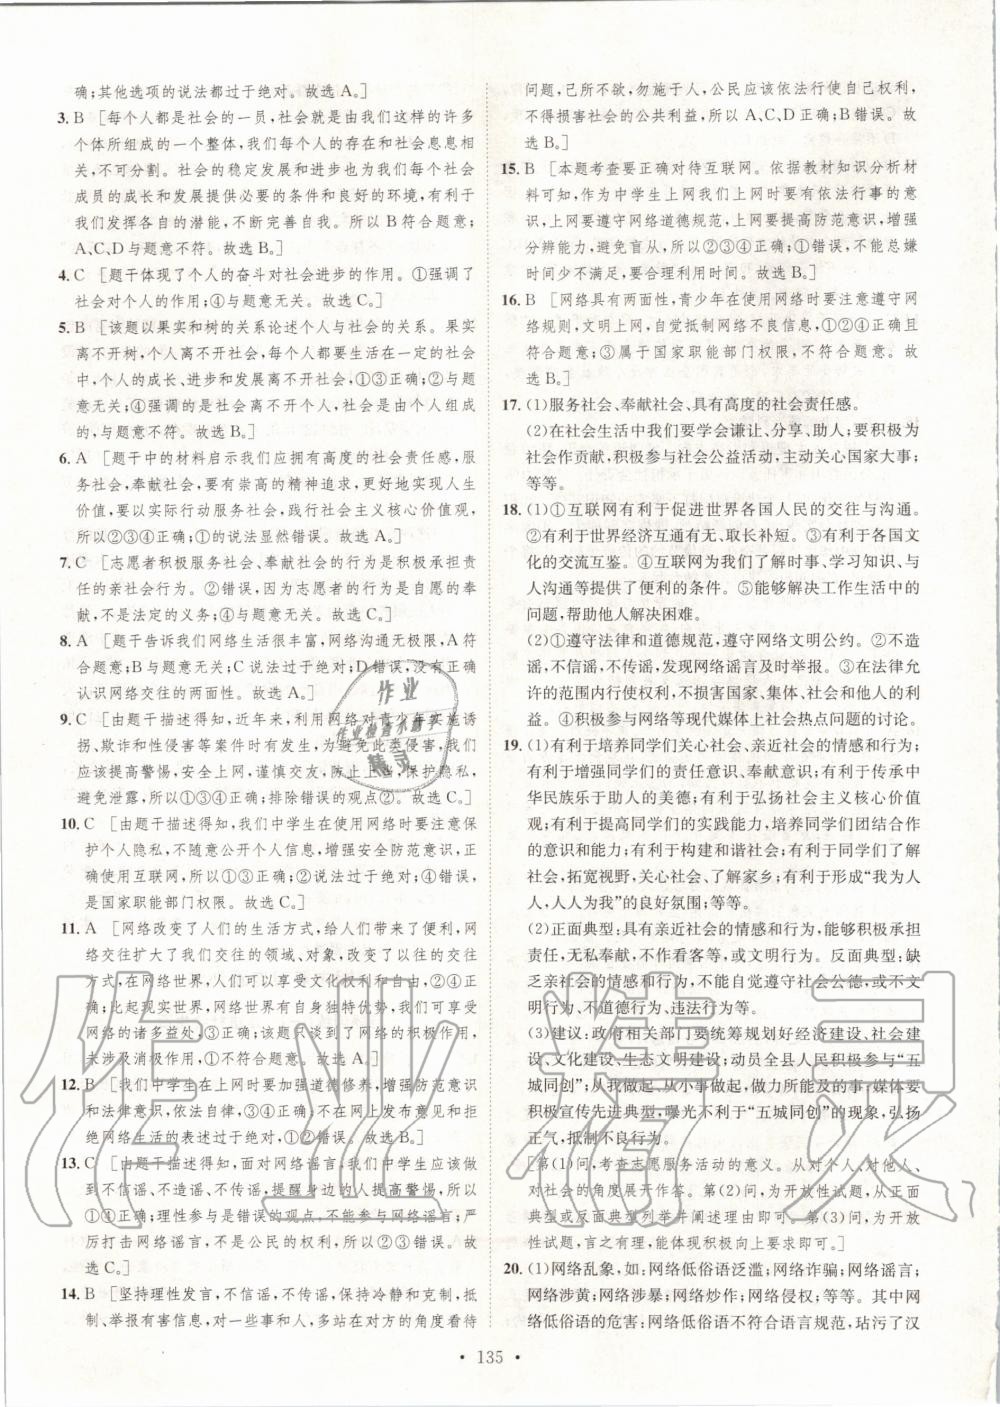 确;其他选项的说法都过于绝对。故选 A。]
3. B [每个人都是社会的一员,社会就是由我们这样的许多
个体所组成的一个整体,我们每个人的存在和社会息息相关,
不可分割。社会的稳定发展和进步给我们每一个社会
成员的成长和发展提供必要的条件和良好的环境,有利于
我们发挥各自的潜能,不断完善自我。所以 B 符合题意;
A、C、D 与题意不符。故选 B。]
4. C [题干体现了个人的奋斗对社会进步的作用。①强调了
社会对个人的作用;④与题意无关。故选 C。]
5. B [该题以果实和树的关系论述个人与社会的关系。果实
离不开树,个人离不开社会,每个人都要生活在一定的社会
中,个人的成长、进步和发展离不开社会,①③正确;②与题
意无关;④强调的是社会离不开个人,社会是由个人组成
的,与题意不符。故选 B。]
6. A [题干中的材料启示我们应拥有高度的社会责任感,服
务社会,奉献社会,要有崇高的精神追求,更好地实现人生
价值,要以实际行动服务社会,践行社会主义核心价值观,
所以①②③正确;④的说法显然错误。故选 A。]
7. C [志愿者积极服务社会、奉献社会的行为是积极
的亲社会行为。②错误,因为志愿者的行为是自愿的奉
献,不是法定的义务;④与题意无关。故选 C。]
8. A [题干告诉我们网络生活很丰富,网络沟通无极限,A 符
合题意;B 与题意无关;C 说法过于绝对;D 错误,没有正确
认识网络交往的两面性。故选 A。]
9. C [由题干描述得知,近年来,利用网络对青少年实施诱
拐、欺诈和性侵害等案件时有发生,为避免此类侵害,我们
应该提高警惕,安全上网,谨慎交友,防止上当,保护隐私,
避免泄露,所以①③④正确;排除错误的观点②。故选 C。]
10. C [由题干描述得知,我们中学生在使用网络时要注意保
护个人隐私,不随意公开个人信息,增强安全防范意识,正确
使用互联网,所以①③正确;②说法过于绝对;④错误,
是国家职能部门权限。故选 C。]
11. A [网络改变了人们的生活方式,给人们带来了便利,网
络交往扩大了我们交往的领域、对象,改变了以往的交往
方式,在网络世界,人们可以享受文化权利和自由,②④正
确;比起现实世界,网络世界有自身独特优势,我们可享受
网络的诸多益处,③正确;该题只谈到了网络的积极作用,
未涉及消极作用,①不符合题意。故选 A。]
12. B [我们中学生在上网时要加强道德修养,增强防范意识
和法律意识,依法自律,③④正确;不在网上发布意见和拒
绝网络生活的表述过于绝对,①②错误。故选 B。]
13. C [由题干描述得知,面对网络谣言,我们中学生应该做
到不信谣、不造谣、不传谣,提醒身边的人提高警惕,所以
①④正确;理性参与是错误的观点,不能参与网络谣言;严
厉打击网络谣言,不是公民的权利,所以②③错误。故
选 C。]
14. B [坚持理性发言,不信谣,不传谣,保持冷静和克制,抵
制、举报有害信息,对一些事和人,多站在对方的角度看待
问题,己所不欲,勿施于人,公民应该依法行使自己权利,
不得损害社会的公共利益,所以 A、C、D 正确;B 错误。故
选 B。]
15. B [本题考查要正确对待互联网。依据教材知识分析材
料可知,作为中学生上网我们上网时要有依法行事的意
识,上网要遵守网络道德规范,上网要提高防范意识,增强
分辨能力,避免受到伤害,所以②③④正确;①错误,不能总嫌
时间少不满足,要合理利用时间。故选 B。]
16. B [网络具有两面性,青少年在使用网络时要注意遵守网
络规则,文明上网,自觉抵制网络不良信息,①②④正确且
符合题意;③属于国家职能部门权限,不符合题意。故
选 B。]
17. (1)服务社会、奉献社会、具有高度的社会责任感。
(2)在社会生活中我们要学会谦让、分享、助人;要积极为
社会作贡献,积极参与社会公益活动,主动关心国家大事;
等等。
18. (1)①互联网有利于促进世界各国人民的交往与沟通。
②有利于世界经济互通有无、取长补短。③有利于各国文
化的交流互鉴。④互联网为人们了解时事、学习知识、与
人沟通等提供了便利的条件。⑤能够解决工作生活中的
问题,帮助他人解决困难。
(2)①遵守法律和道德规范,遵守网络文明公约。②不造
谣,不信谣,不传谣,发现网络谣言及时举报。③在法律允
许的范围内行使权利,不损害国家、集体、社会和他人的利
益。④积极参与网络等现代媒体上社会热点问题的讨论。
19. (1)有利于培养同学们关心社会、亲近社会的情感和行为;
有利于增强同学们的责任意识、奉献意识;有利于传承中
华民族乐于助人的美德;有利于弘扬社会主义核心价值
观;有利于提高同学们的实践能力,培养同学们团结合作
的意识和能力;有利于构建和谐社会;有利于同学们了解社
会,拓宽视野,关心社会、了解家乡;有利于形成“我为人
人,人人为我”的良好氛围;等等。
(2)正面典型:具有亲社会的情感和行为,能够积极履行
义务,无私奉献,服务社会,文明友善等。反面典型:缺
乏亲社会的情感和行为,不能自觉遵守社会公德,或不文
明行为、不道德行为、违法行为等。
(3)建议:政府相关部门要统筹规划好经济建设、社会建
设、文化建设、生态文明建设;动员全县人民积极参与“五
城同创”;从我做起,从小事做起,做力所能及的事;媒体要
积极宣传先进典型,曝光不利于“五城同创”的现象,弘扬
正气,抵制不良行为。
[第(1)问,考查志愿服务活动的意义。从对个人、对他人、
对社会的角度展开作答。第(2)问,为开放性试题,从正面
典型或反面典型列举并阐述理由即可。第(3)问,为开放
性试题,言之有理,能体现积极向上要求即可。]
20. (1)网络乱象,如:网络低俗语泛滥;网络诈骗;网络谣言;
网络涉黄;网络涉暴;网络炒作;网络侵权;等等。其中网
络低俗语的危害:网络低俗语不符合语言规范,玷污了汉
• 135 •
作业
作业检查小助手
精灵
作业精灵